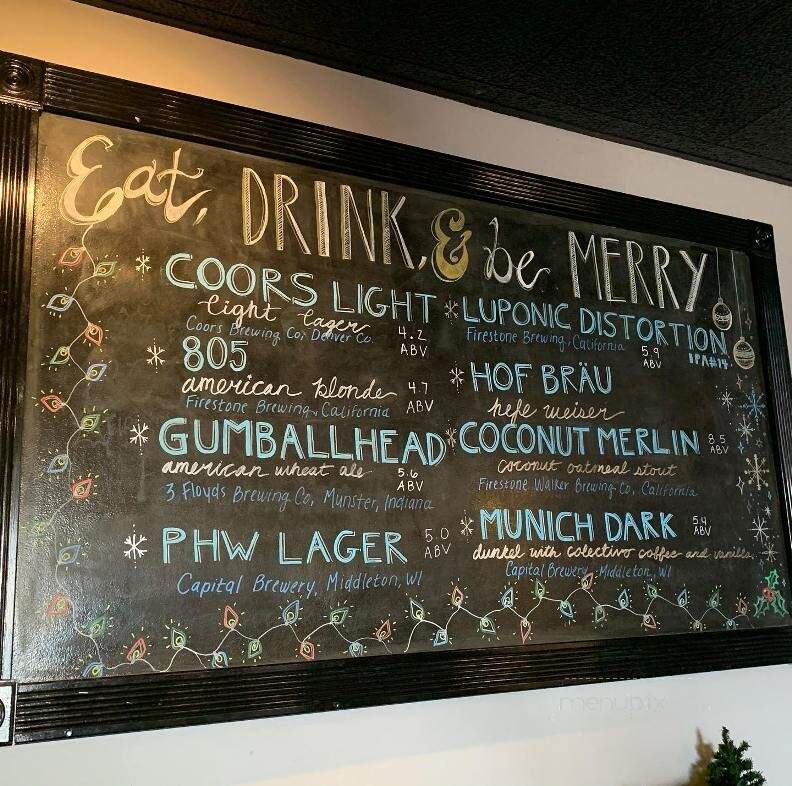 Eat, DRINK, & be MERRY
COORS LIGHT
light lager
Coors Brewing Co, Denver Co.
4.2
ABV
805
american blonde
Firestone Brewing, California
4.7
ABV
GUMBALLHEAD
american wheat ale
3 Floyds Brewing Co, Munster, Indiana
5.6
ABV
PHW LAGER
Capital Brewery, Middleton, WI
5.0
ABV
LUPONIC DISTORTION
Firestone Brewing, California
5.9
ABV
IPA #14
HOF BRÄU
hefe weiser
COCONUT MERLIN
coconut oatmeal stout
Firestone Walker Brewing Co, California
8.5
ABV
MUNICH DARK
dunkel with colectivo coffee and vanilla
Capital Brewery, Middleton, WI
5.4
ABV
menupix